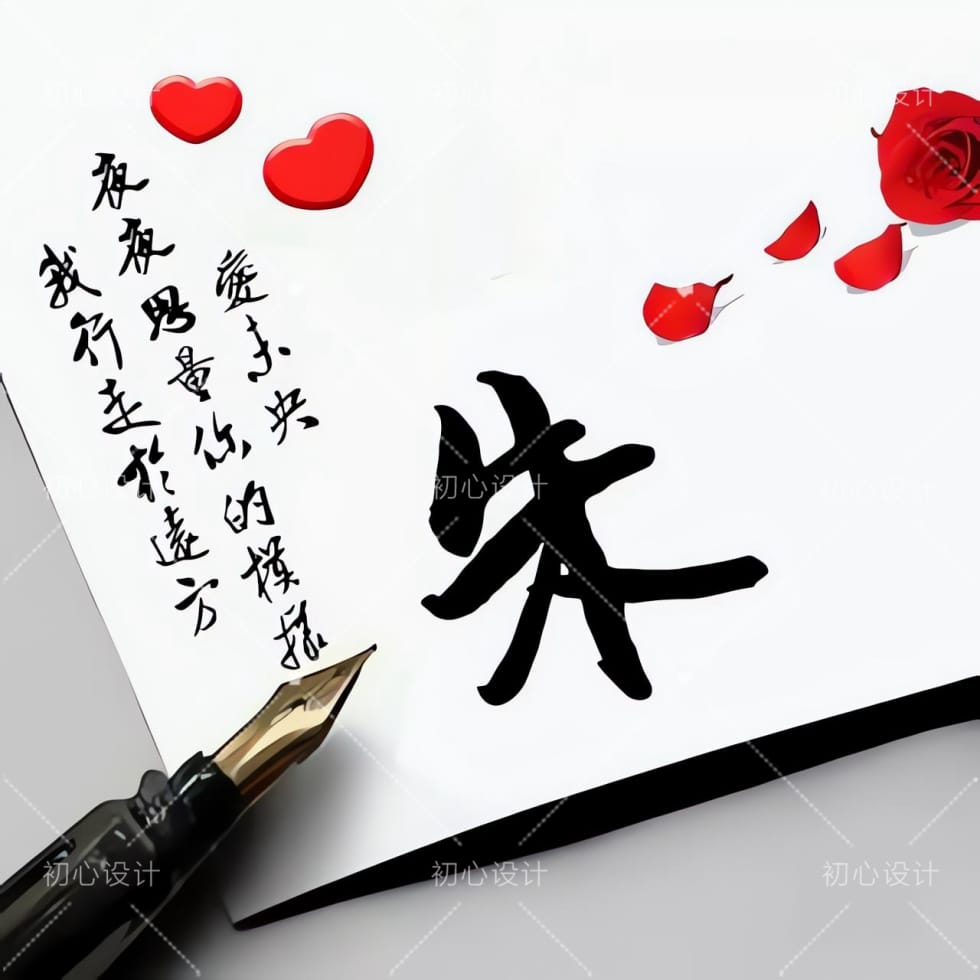 朱
愛未央
夜夜思量你的模樣
我行走於遠方
初心设计
初心设计
初心设计
初心设计
初心设计
初心设计
初心设计
初心设计
初心设计